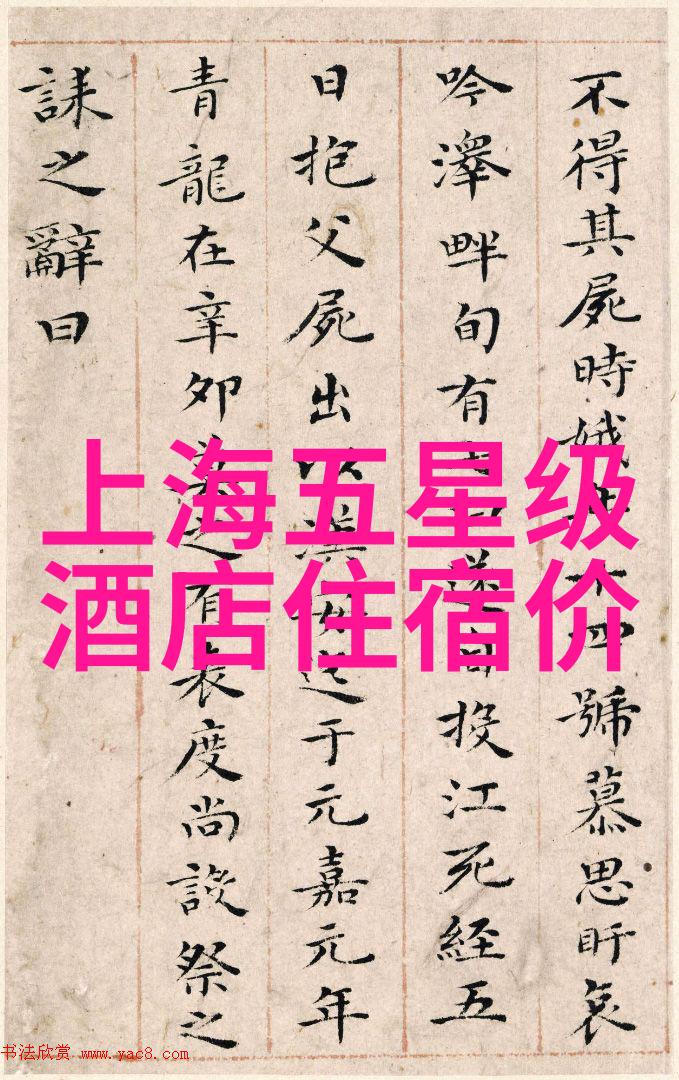 不得其屍時娥十四號慕思盱哀
吟澤畔旬有遂自投江死經五
日抱父屍出以漢安迄于元嘉元年
青龍在辛卯莫之有表度尚設祭之
誄之辭曰
上海五星级
酒店住宿价
书法欣赏 www.yac8.com